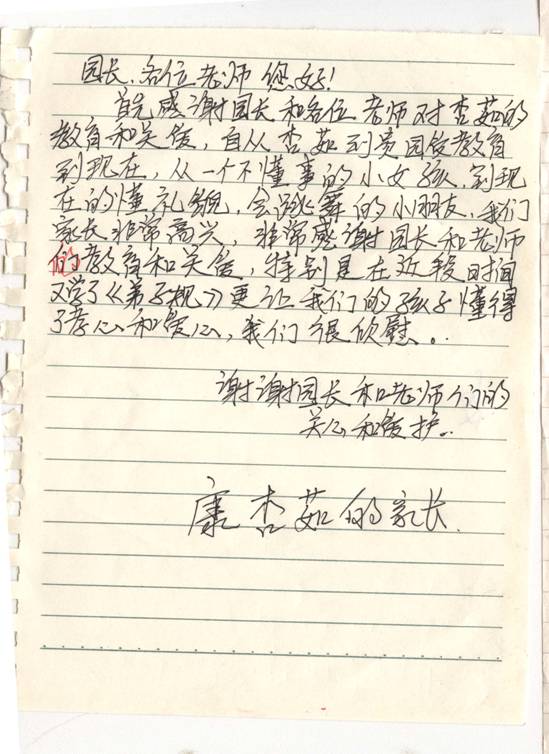 园长、各位老师您好!
首先感谢园长和各位老师对杏茹的
教育和关爱,自从杏茹到贵园受教育
到现在,从一个不懂事的小女孩、到现
在的懂礼貌,会跳舞的小朋友、我们
家长非常高兴,非常感谢园长和老师
的教育和关爱,特别是在近段时间
又学了《弟子规》更让我们的孩子懂得
了孝心和爱心,我们很欣慰。
谢谢园长和老师们的
关心和爱护。
康杏茹的家长